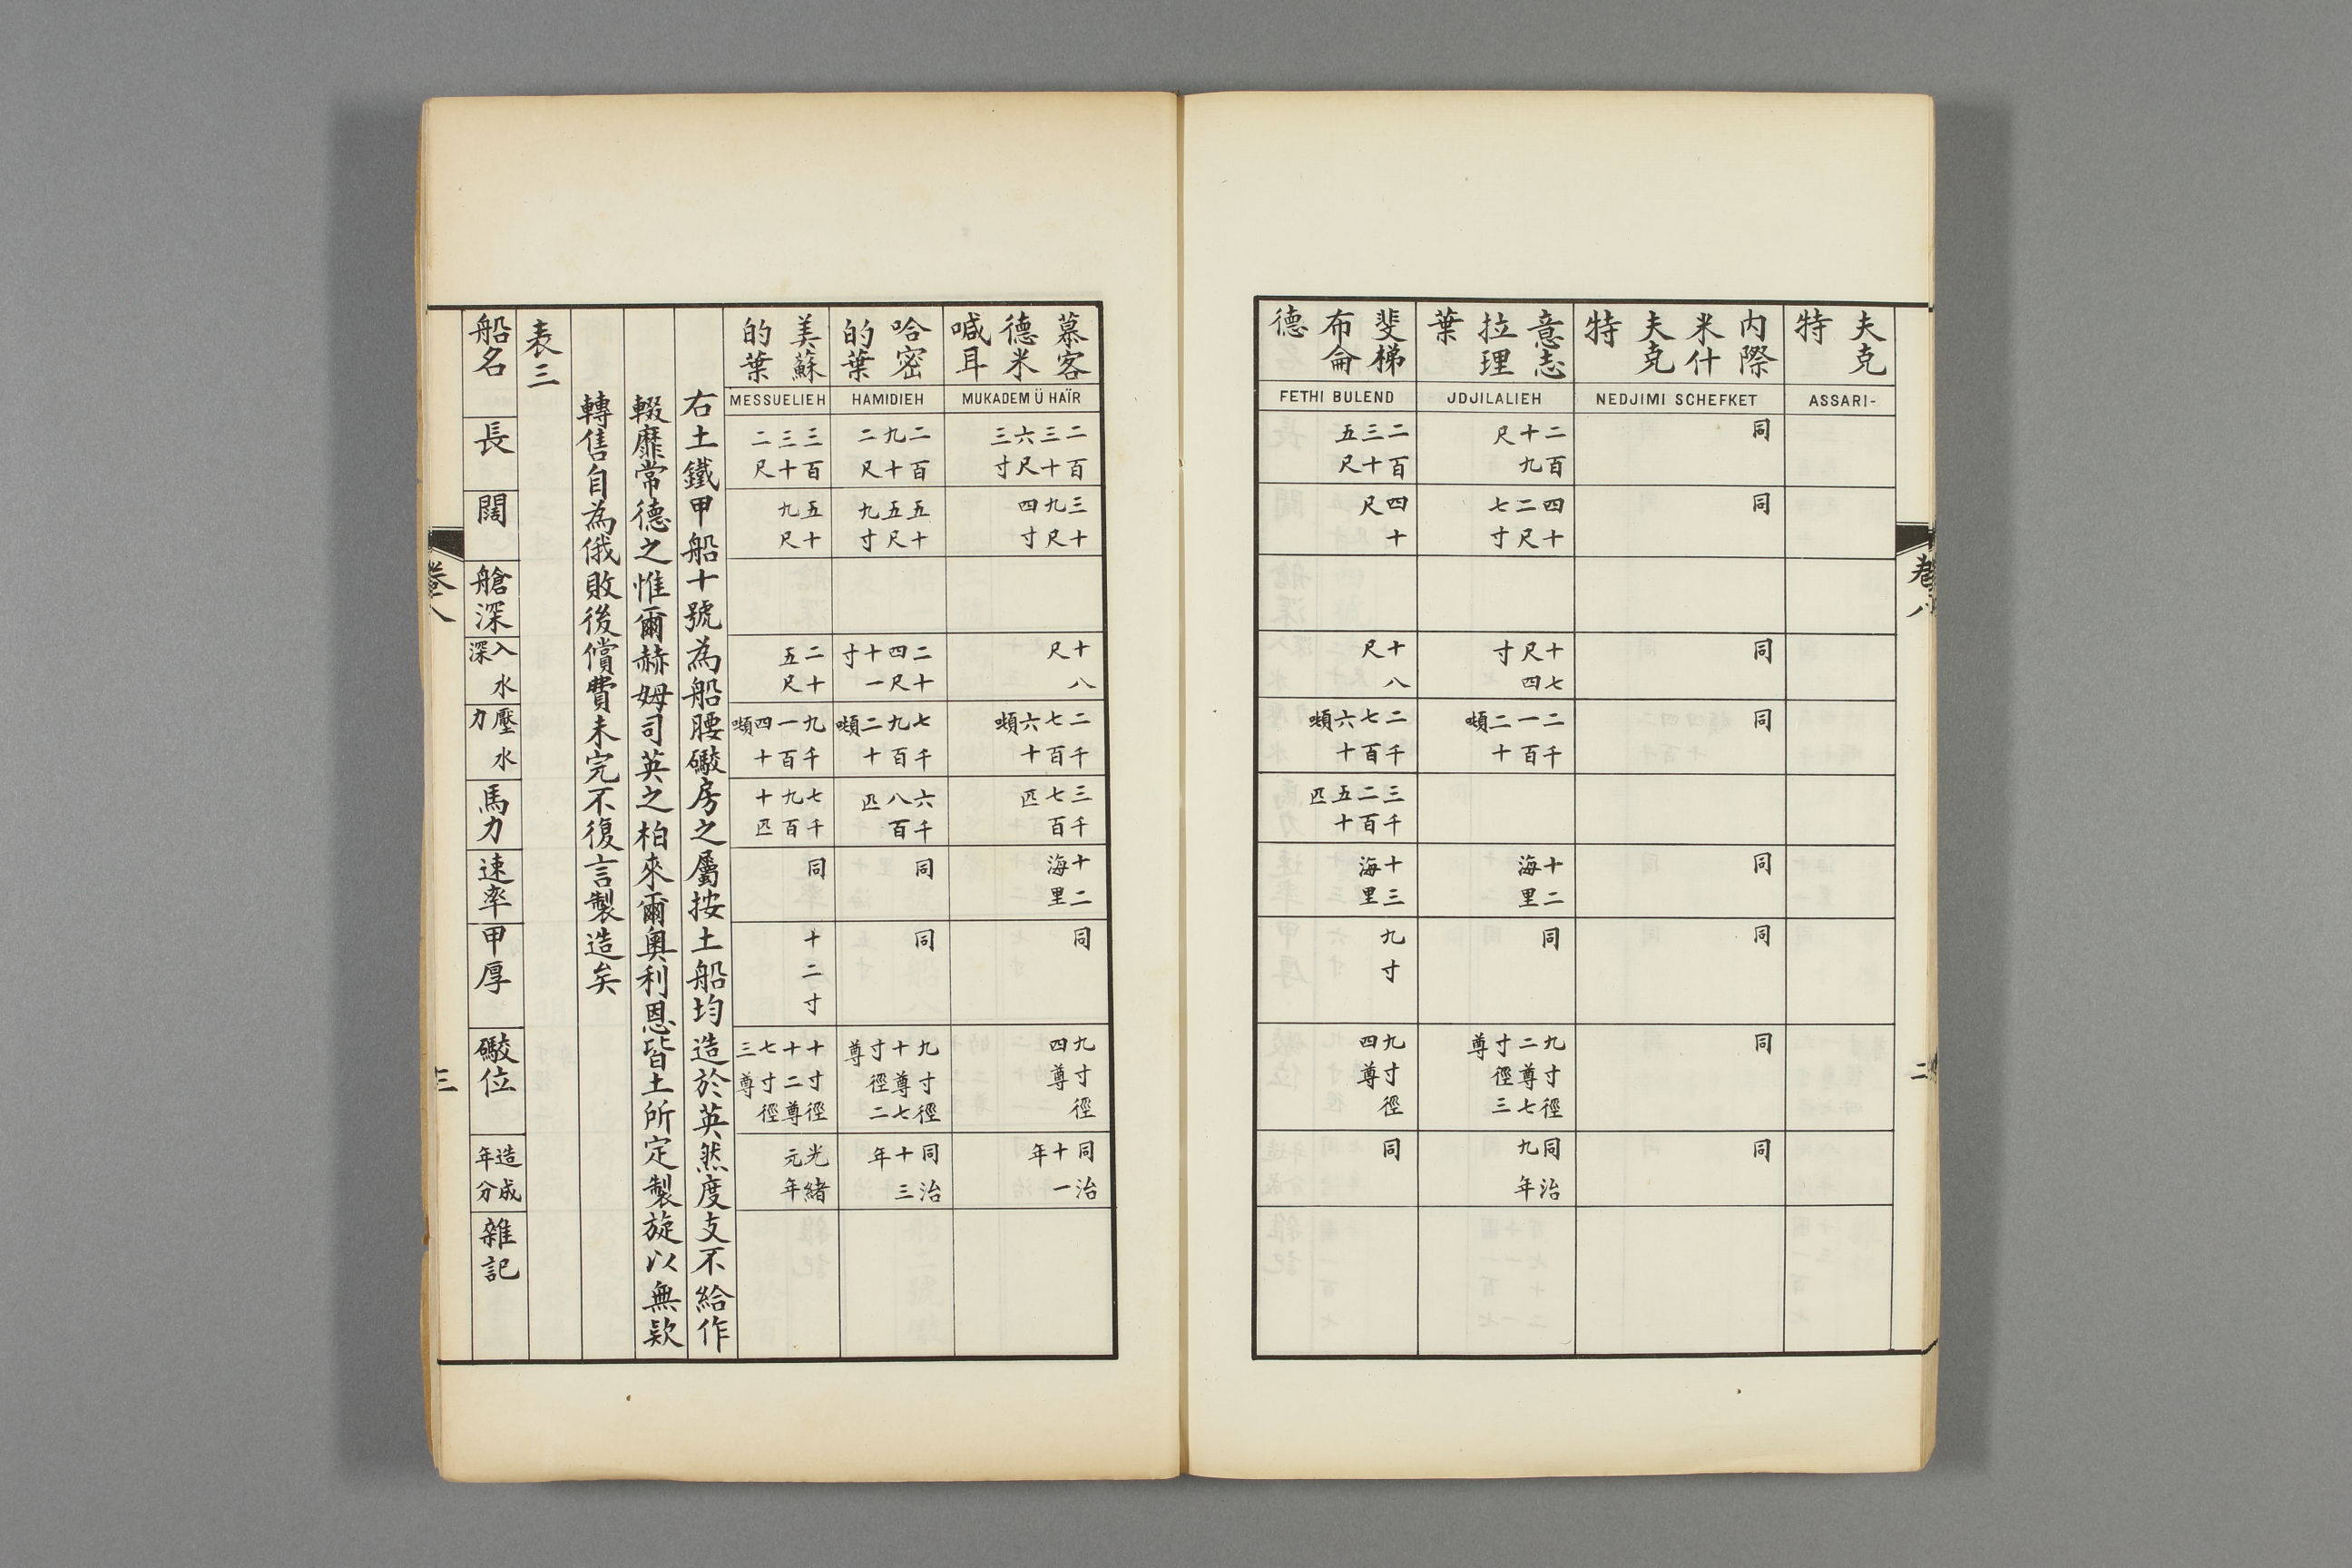 夫克
特
ASSARI-
內際
米什
夫克
特
NEDJIMI SCHEFKET
同
同
同
同
同
同
同
同
意志
拉理
葉
JDJILALIEH
二百
十九
尺
四十
二尺
七寸
十七
尺四
寸
二千
一百
二十
噸
十二
海里
同
九寸徑
二尊七
寸徑三
尊
同治
九年
斐梯
布侖
德
FETHI BULEND
二百
三十
五尺
四十
尺
十八
尺
二千
七百
六十
噸
三千
二百
五十
匹
十三
海里
九寸
九寸徑
四尊
同
卷八
二
慕客
德米
喊耳
MUKADEM Ü HAÏR
二百
三十
六尺
三寸
三十
九尺
四寸
十八
尺
二千
七百
六十
噸
三千
七百
匹
十二
海里
同
九寸徑
四尊
同治
十一
年
哈密
的葉
HAMIDIEH
二百
九十
二尺
五十
五尺
九寸
二十
四尺
十一
寸
七千
九百
二十
噸
六千
八百
匹
同
同
九寸徑
十尊七
寸徑二
尊
同治
十三
年
美蘇
的葉
MESSUELIEH
三百
三十
二尺
五十
九尺
二十
五尺
九千
一百
四十
噸
七千
九百
十匹
同
十二寸
十寸徑
十二尊
七寸徑
三尊
光緒
元年
右土鐵甲船十號為船腰礮房之屬按土船均造於英然度支不給作
輟靡常德之惟爾赫姆司英之柏來爾奧利恩皆土所定製旋以無欵
轉售自為俄敗後償費未完不復言製造矣
表三
船名
長
闊
艙深
入水
深
壓水
力
馬力
速率
甲厚
礮位
造成
年分
雜記
卷八
三